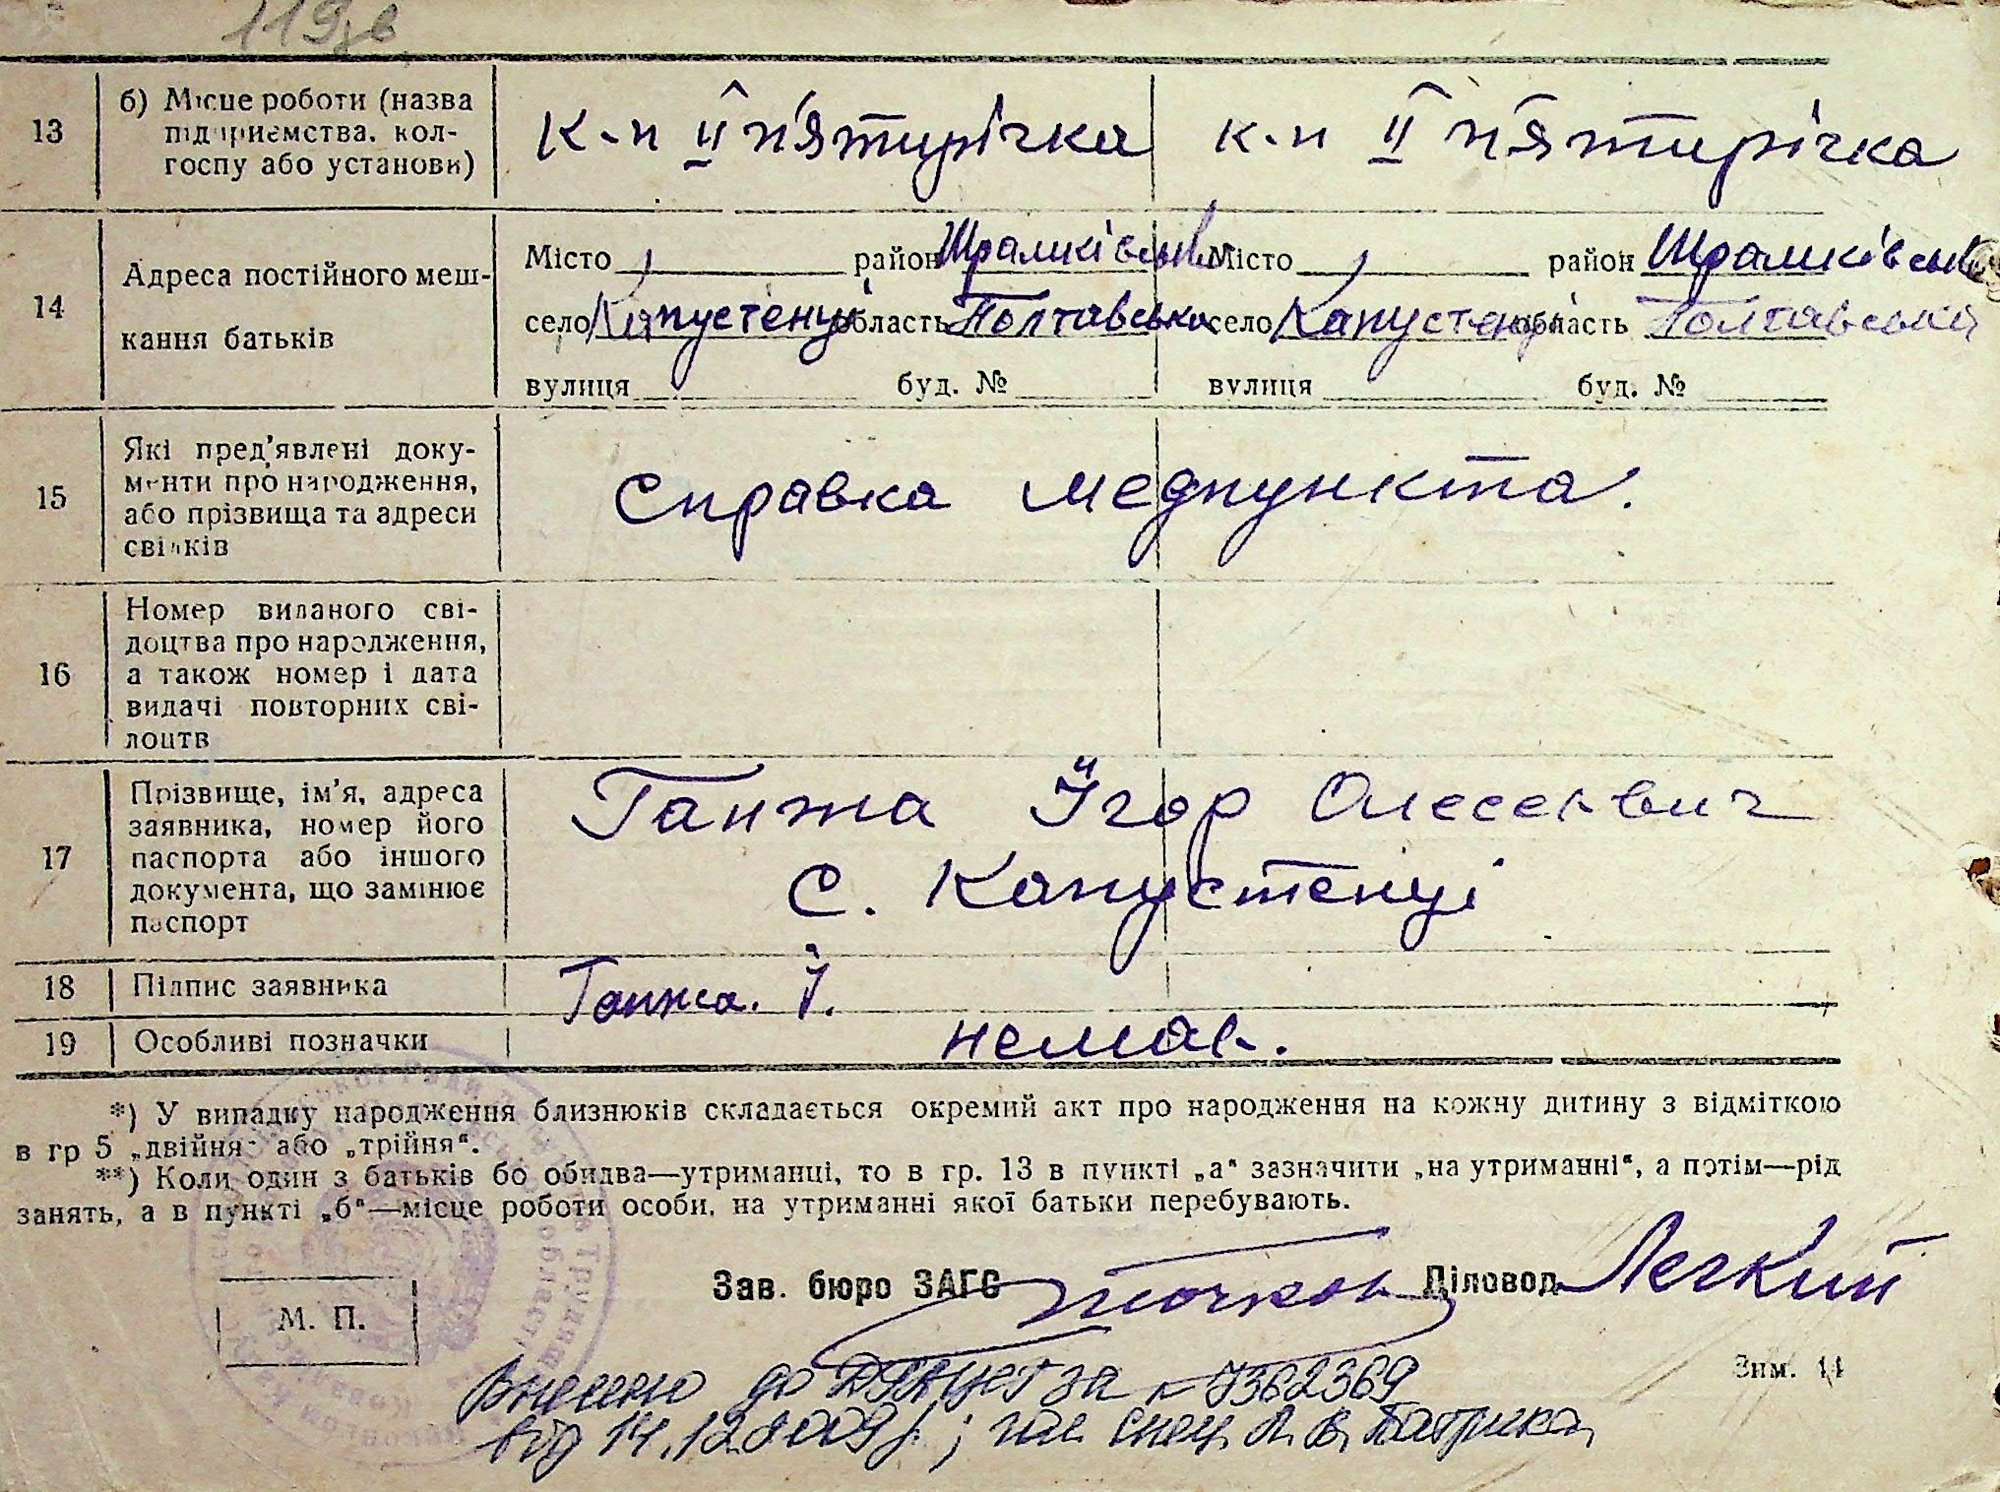 119зв
13 б) Місце роботи (назва підприємства, колгоспу або установи) к-п ІІ п'ятирічка к-п ІІ п'ятирічка
14 Адреса постійного мешкання батьків
Місто район Шрамківськ Місто район Шрамківськ
село Капустенці область Полтавська село Капустенці область Полтавська
вулиця буд. № вулиця буд. №
15 Які пред'явлені документи про народження, або прізвища та адреси свідків Справка медпункта.
16 Номер виданого свідоцтва про народження, а також номер і дата видачі повторних свідоцтв
17 Прізвище, ім'я, адреса заявника, номер його паспорта або іншого документа, що замінює паспорт Ганжа Ігор
с. Капустенці
18 Підпис заявника Ганжа. І.
19 Особливі позначки немає.
*) У випадку народження близнюків складається окремий акт про народження на кожну дитину з відміткою
в гр 5 „двійня" або „трійня".
**) Коли один з батьків бо обидва—утриманці, то в гр. 13 в пункті „а" зазначити „на утриманні", а потім—рід
занять, а в пункті „б"—місце роботи особи, на утриманні якої батьки перебувають.
Зав. бюро ЗАГС Діловод Легкий
М. П.
Зим. 14
Внесено до ДРАЦСГ за № 7362369
від 14.12.2009р.; спец. Л. В.